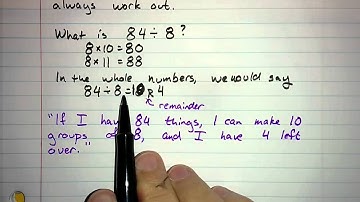 always work out.
What is 84 ÷ 8?
8 × 10 = 80
8 × 11 = 88
In the whole numbers, we would say
84 ÷ 8 = 10 R 4
remainder
"If I have 84 things, I can make 10
groups of 8, and I have 4 left
over."